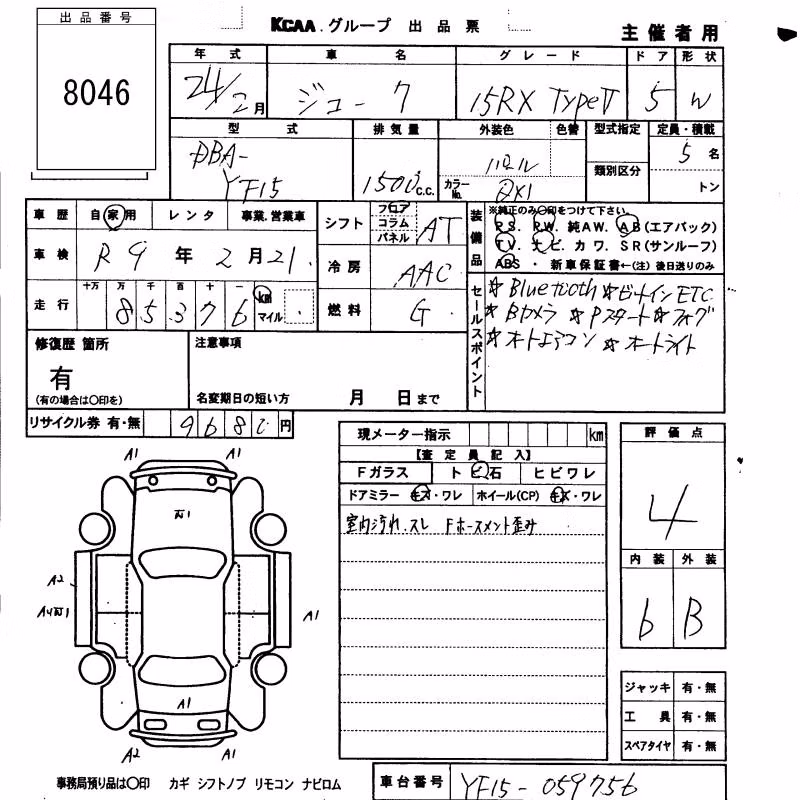 出品番号
8046
KCAA グループ 出品票
主催者用
年式 車名 グレード ドア 形状
24/2月 ジューク 15RX TypeV 5 W
型式 排気量 外装色 色替 型式指定 定員・積載
DBA-YF15 1500c.c. パール 類別区分 5名
カラーNo. QX1 トン
車歴 自家用 レンタ 事業、営業車
シフト フロア コラム パネル AT
装備品 ※純正のみ〇印をつけて下さい。
PS. PW. 純AW. AB(エアバック)
TV. ナビ. カワ. SR(サンルーフ)
ABS ・ 新車保証書←(注) 後日送りのみ
車検 R9年2月21.
冷房 AAC
走行 十万 万 千 百 十 一
85376 km マイル
燃料 G
セールスポイント
☆Bluetooth ☆ビルトインETC
☆Bカメラ ☆Pスタート ☆フォグ
☆オートエアコン ☆オートライト
修復歴 箇所
有
(有の場合は〇印を)
注意事項
名変期日の短い方 月 日まで
リサイクル券 有・無 9680円
現メーター指示 km
【査定員記入】
Fガラス ト ビ 石 ヒビワレ
ドアミラー キズ・ワレ ホイール(CP) キズ・ワレ
室内汚れ、スレ Fホースメント歪み
評価点
4
内装 外装
b B
A1 A1
A2
A1
A1
A1
A2 A1
ジャッキ 有・無
工具 有・無
スペアタイヤ 有・無
事務局預り品は〇印 カギ シフトノブ リモコン ナビロム
車台番号 YF15-059756